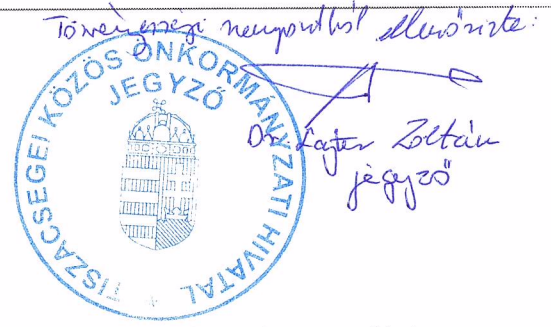 Törvényességi szempontból ellenőrizte:
TISZACSEGEI KÖZÖS ÖNKORMÁNYZATI HIVATAL
JEGYZŐ
Dr Lajter Zoltán
jegyző